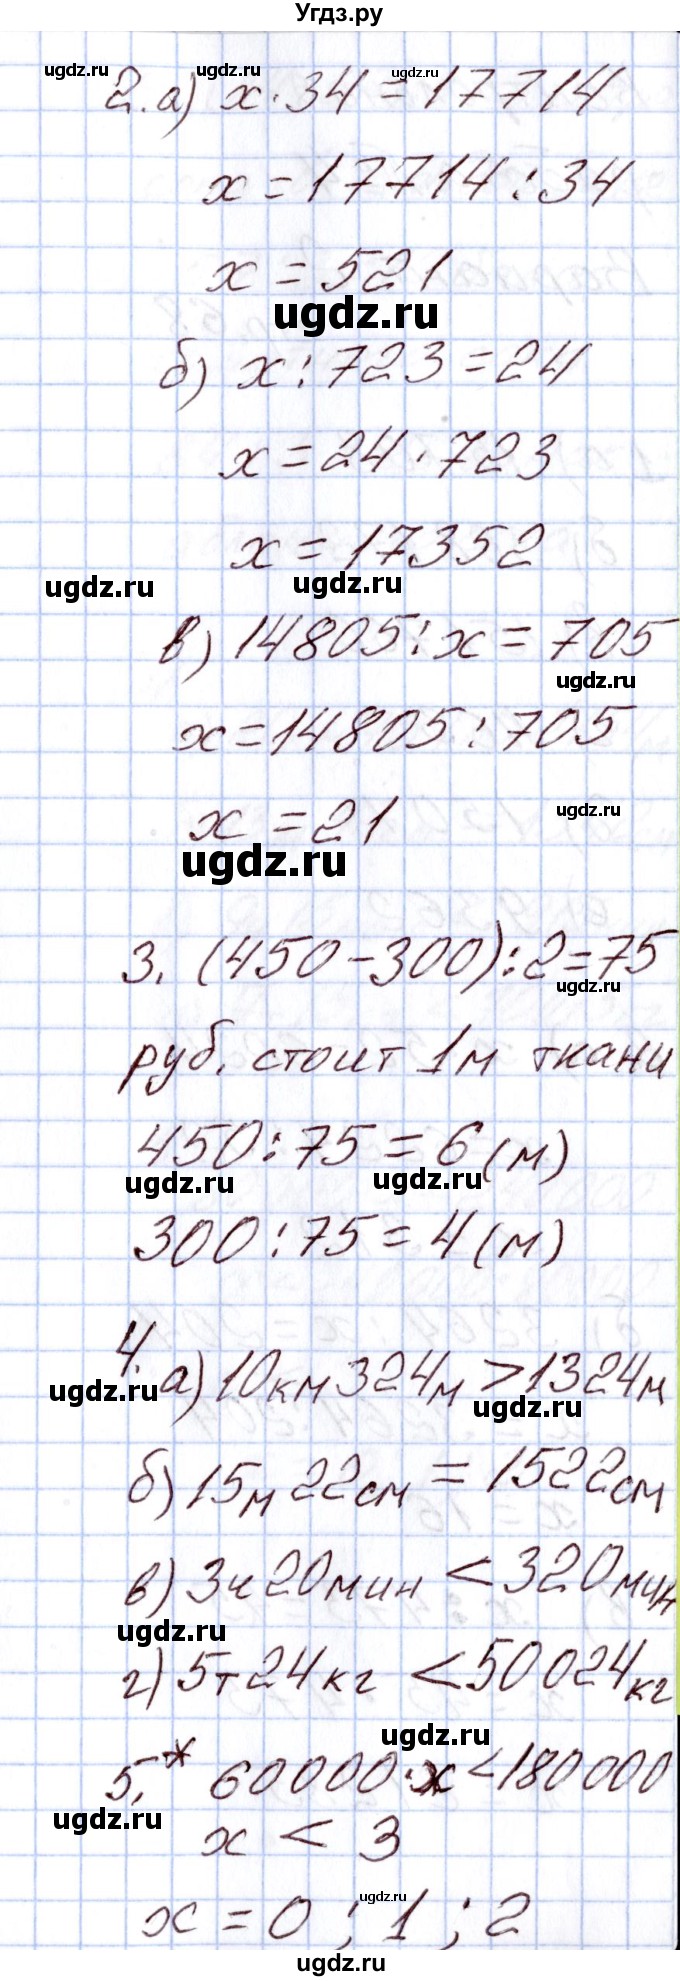 Угдз.ру
ugdz.ru ugdz.ru ugdz.ru
2. а) x · 34 = 17714
x = 17714 : 34
x = 521
ugdz.ru
б) x : 723 = 24
x = 24 · 723
x = 17352
ugdz.ru ugdz.ru
в) 14805 : x = 705
ugdz.ru
x = 14805 : 705
x = 21
ugdz.ru
ugdz.ru
3. (450 - 300) : 2 = 75
ugdz.ru
руб. стоит 1м ткани
450 : 75 = 6 (м)
ugdz.ru ugdz.ru
300 : 75 = 4 (м)
4. а) 10км 324м > 1324м
ugdz.ru ugdz.ru
б) 15м 22см = 1522см
в) 3ч 20мин < 320мин
ugdz.ru
г) 5т 24кг < 50024кг
ugdz.ru
5.* 60000 · x < 180000
ugdz.ru
x < 3
ugdz.ru
x = 0 ; 1 ; 2
ugdz.ru